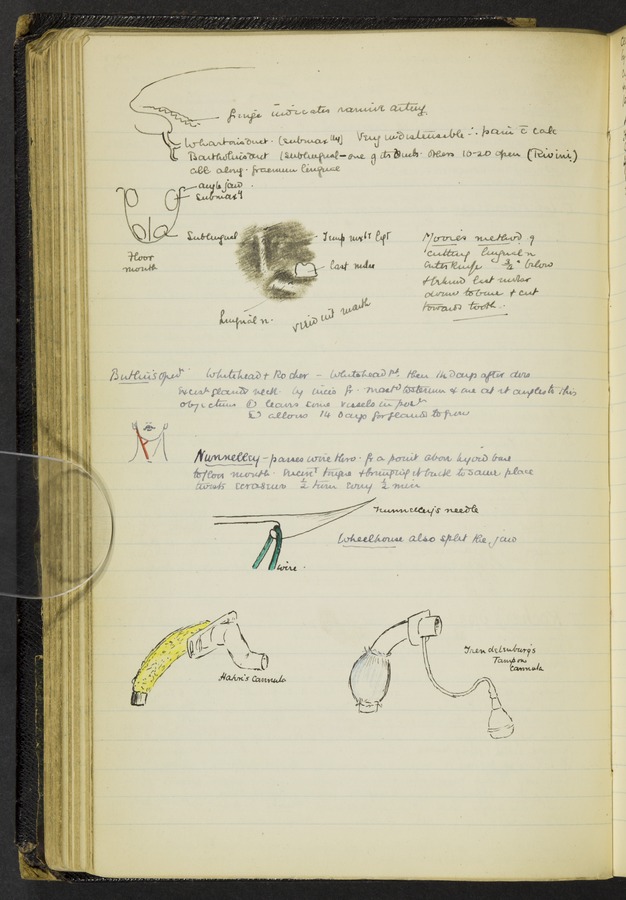 fringe indicates ranine artery
Wharton's duct (submax lly) Very undistensible ∴ pain c̄ calc
Bartholin's duct (sublingual – one of its ducts. others 10-20 open (Rivini)
all along fraenum linguae
angle jaw
Submaxy
Sublingual
Floor
mouth
last molar
lingual n.
Moore's method of
cutting lingual n
enter knife ¾" below
+ behind last molar
down to bone + cut
towards tooth.
Butlin's Opn Whitehead + Kocher – Whitehead then 14 days after does
glands neck by incis
objections ① leaves some vessels
② allows 14 days for glands to grow
Nunnelley – passes wire thro. fr a point above hyoid bone
to floor mouth. tongue + bringing it back to same place
½ turn every ½ min
Nunnelley's needle
Wheelhouse also split the jaw
wire.
Hahn's Cannula
Trendelenburg's
Tampon
Cannula